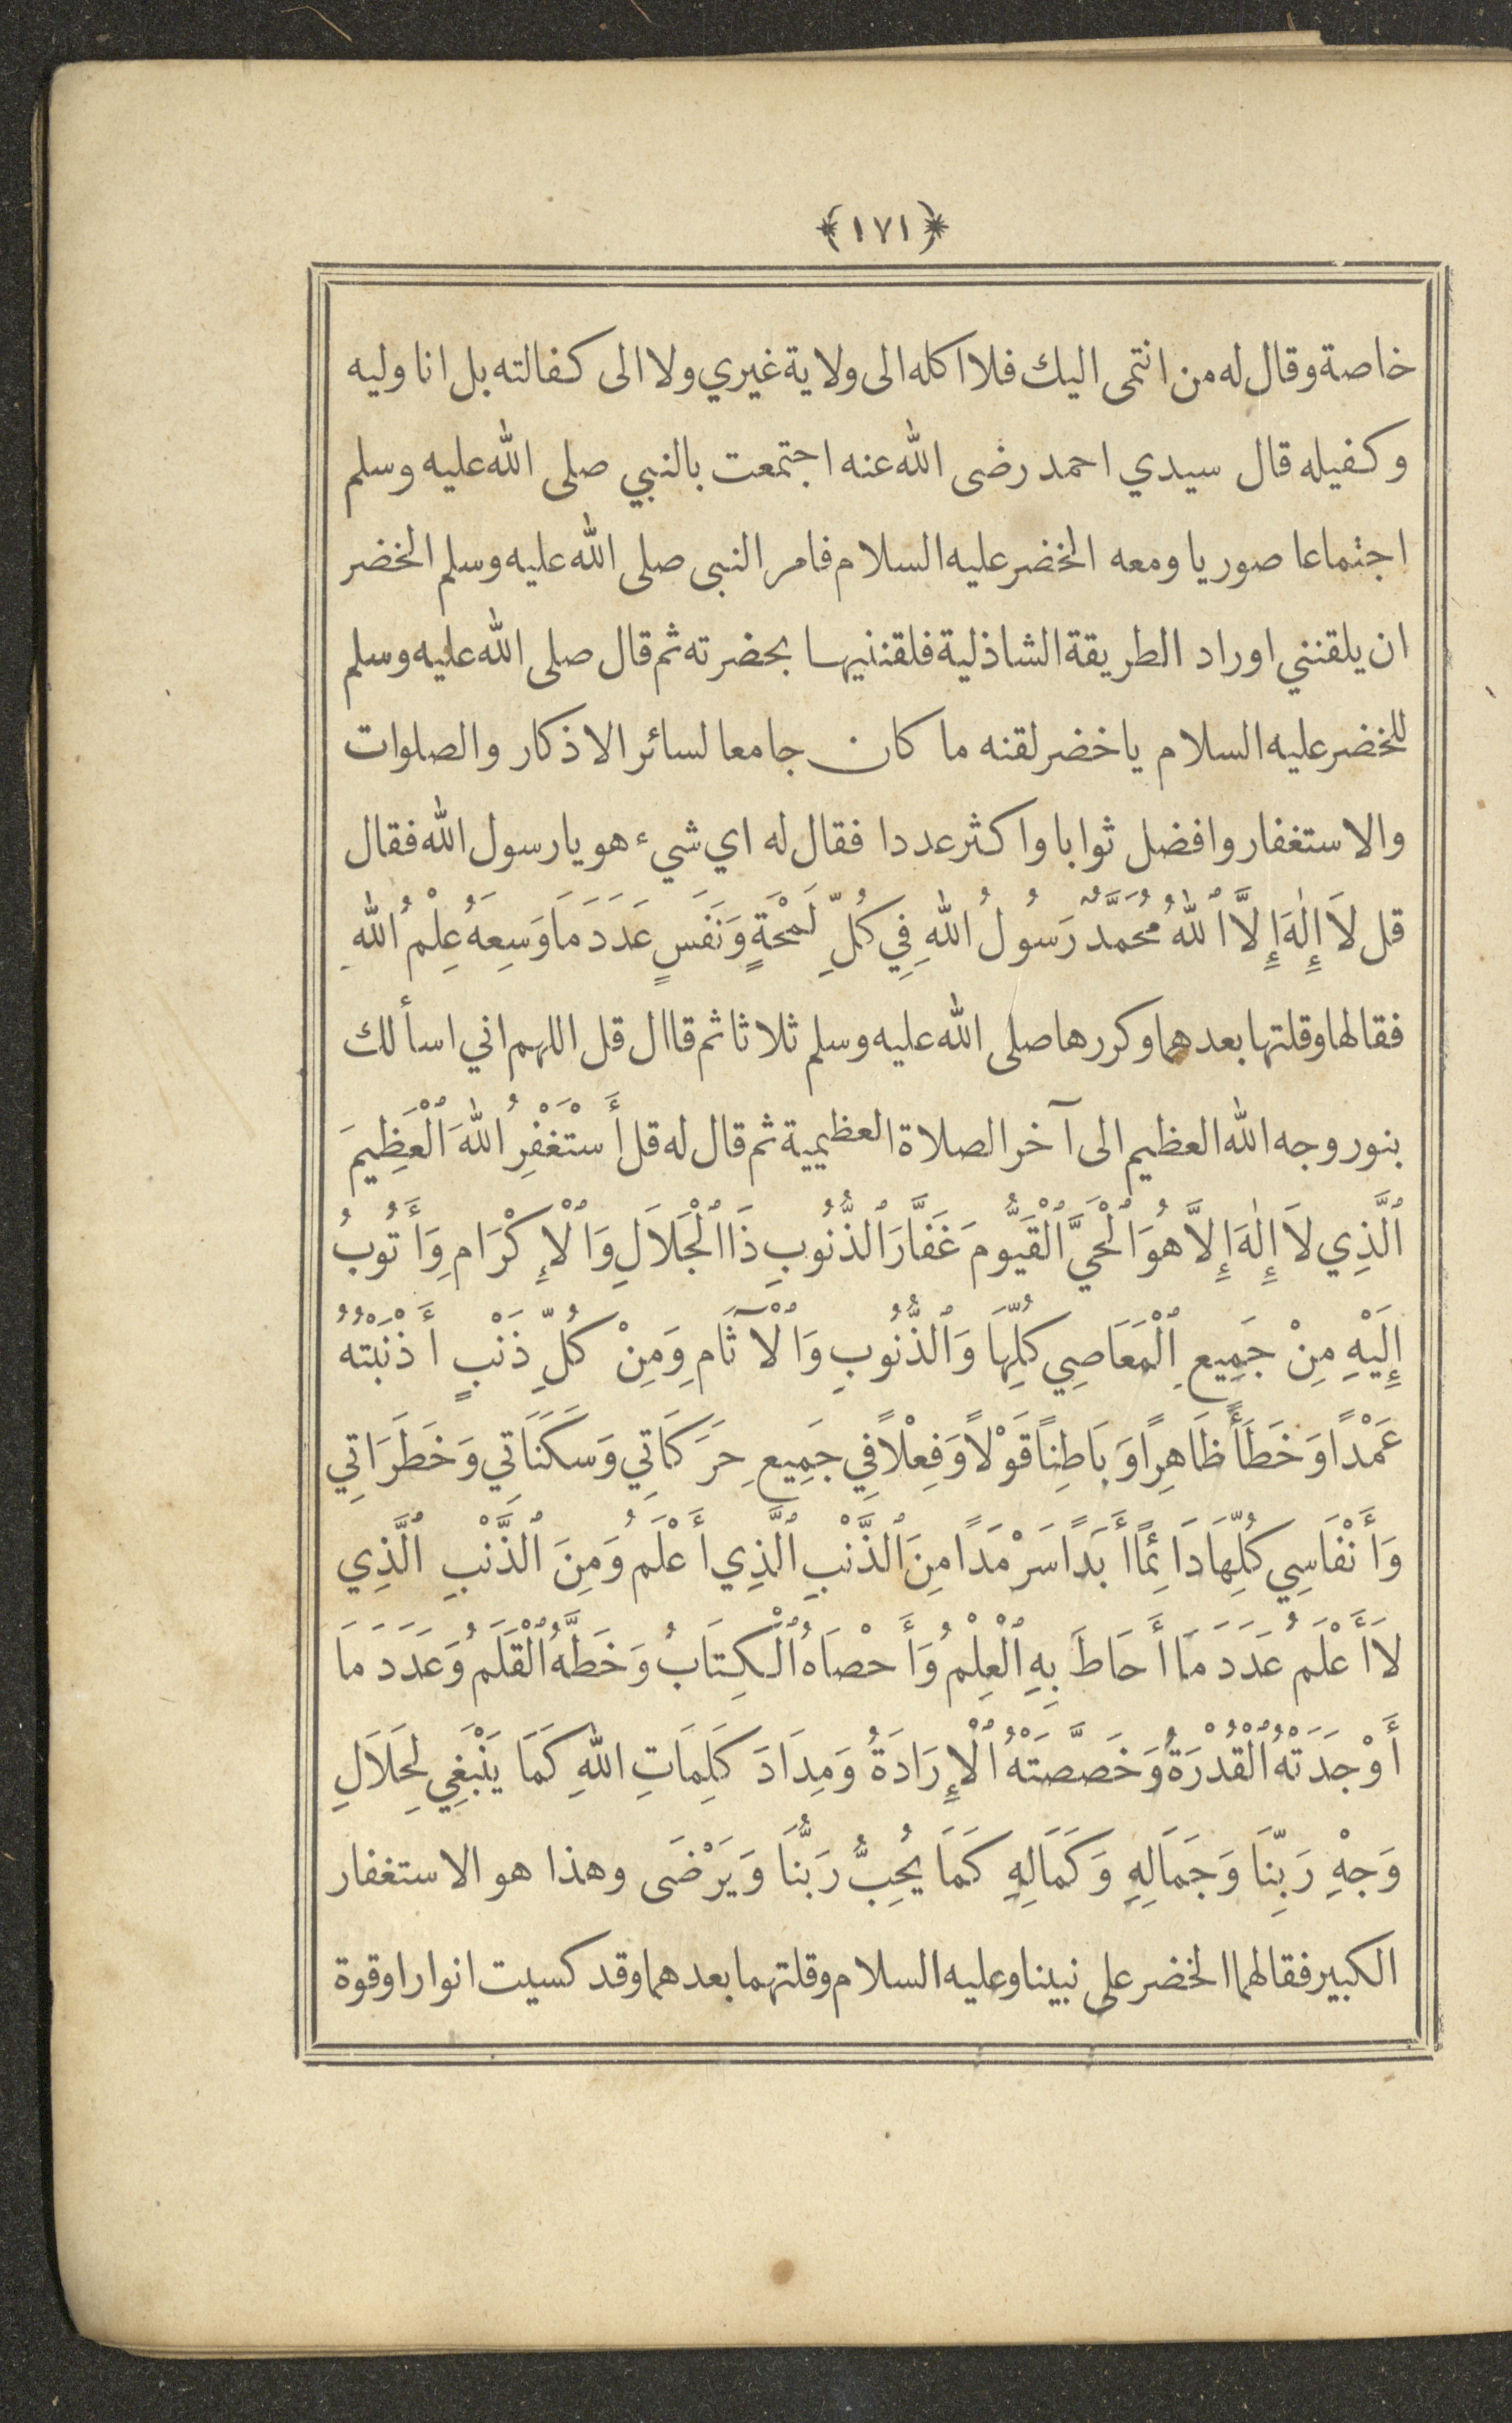 ﴿١٧١﴾
خاصة وقال له من انتمى اليك فلا اكله الى ولاية غيري ولا الى كفالته بل انا وليه
وكفيله قال سيدي احمد رضى الله عنه اجتمعت بالنبي صلى الله عليه وسلم
اجتماعا صوريا ومعه الخضر عليه السلام فامر النبى صلى الله عليه وسلم الخضر
ان يلقنني اوراد الطريقة الشاذلية فلقننيها بحضرته ثم قال صلى الله عليه وسلم
للخضر عليه السلام ياخضر لقنه ما كان جامعا لسائر الاذكار والصلوات
والاستغفار وافضل ثوابا واكثر عددا فقال له اي شيء هو يارسول الله فقال
قل لَا إِلٰهَ إِلَّا ٱللهُ مُحَمَّدٌ رَسُولُ ٱللهِ فِي كُلِّ لَمْحَةٍ وَنَفَسٍ عَدَدَ مَا وَسِعَهُ عِلْمُ ٱللهِ
فقالها وقلتها بعدهما وكررها صلى الله عليه وسلم ثلاثا ثم قاال قل اللهم اني اسألك
بنور وجه الله العظيم الى آخر الصلاة العظيمية ثم قال له قل أَسْتَغْفِرُ ٱللهَ ٱلْعَظِيمَ
ٱلَّذِي لَا إِلٰهَ إِلَّا هُوَ ٱلْحَيَّ ٱلْقَيُّومَ غَفَّارَ ٱلذُّنُوبِ ذَا ٱلْجَلَالِ وَٱلْإِكْرَامِ وَأَتُوبُ
إِلَيْهِ مِنْ جَمِيعِ ٱلْمَعَاصِي كُلِّهَا وَٱلذُّنُوبِ وَٱلْآثَامِ وَمِنْ كُلِّ ذَنْبٍ أَذْنَبْتُهُ
عَمْدًا وَخَطَأً ظَاهِرًا وَبَاطِنًا قَوْلًا وَفِعْلًا فِي جَمِيعِ حَرَكَاتِي وَسَكَنَاتِي وَخَطَرَاتِي
وَأَنْفَاسِي كُلِّهَا دَائِمًا أَبَدًا سَرْمَدًا مِنَ ٱلذَّنْبِ ٱلَّذِي أَعْلَمُ وَمِنَ ٱلذَّنْبِ ٱلَّذِي
لَا أَعْلَمُ عَدَدَ مَا أَحَاطَ بِهِ ٱلْعِلْمُ وَأَحْصَاهُ ٱلْكِتَابُ وَخَطَّهُ ٱلْقَلَمُ وَعَدَدَ مَا
أَوْجَدَتْهُ ٱلْقُدْرَةُ وَخَصَّصَتْهُ ٱلْإِرَادَةُ وَمِدَادَ كَلِمَاتِ اللهِ كَمَا يَنْبَغِي لِجَلَالِ
وَجْهِ رَبِّنَا وَجَمَالِهِ وَكَمَالِهِ كَمَا يُحِبُّ رَبُّنَا وَيَرْضَى وهذا هو الاستغفار
الكبير فقالهما الخضر على نبينا وعليه السلام وقلتهما بعدهما وقد كسيت انوارا وقوة